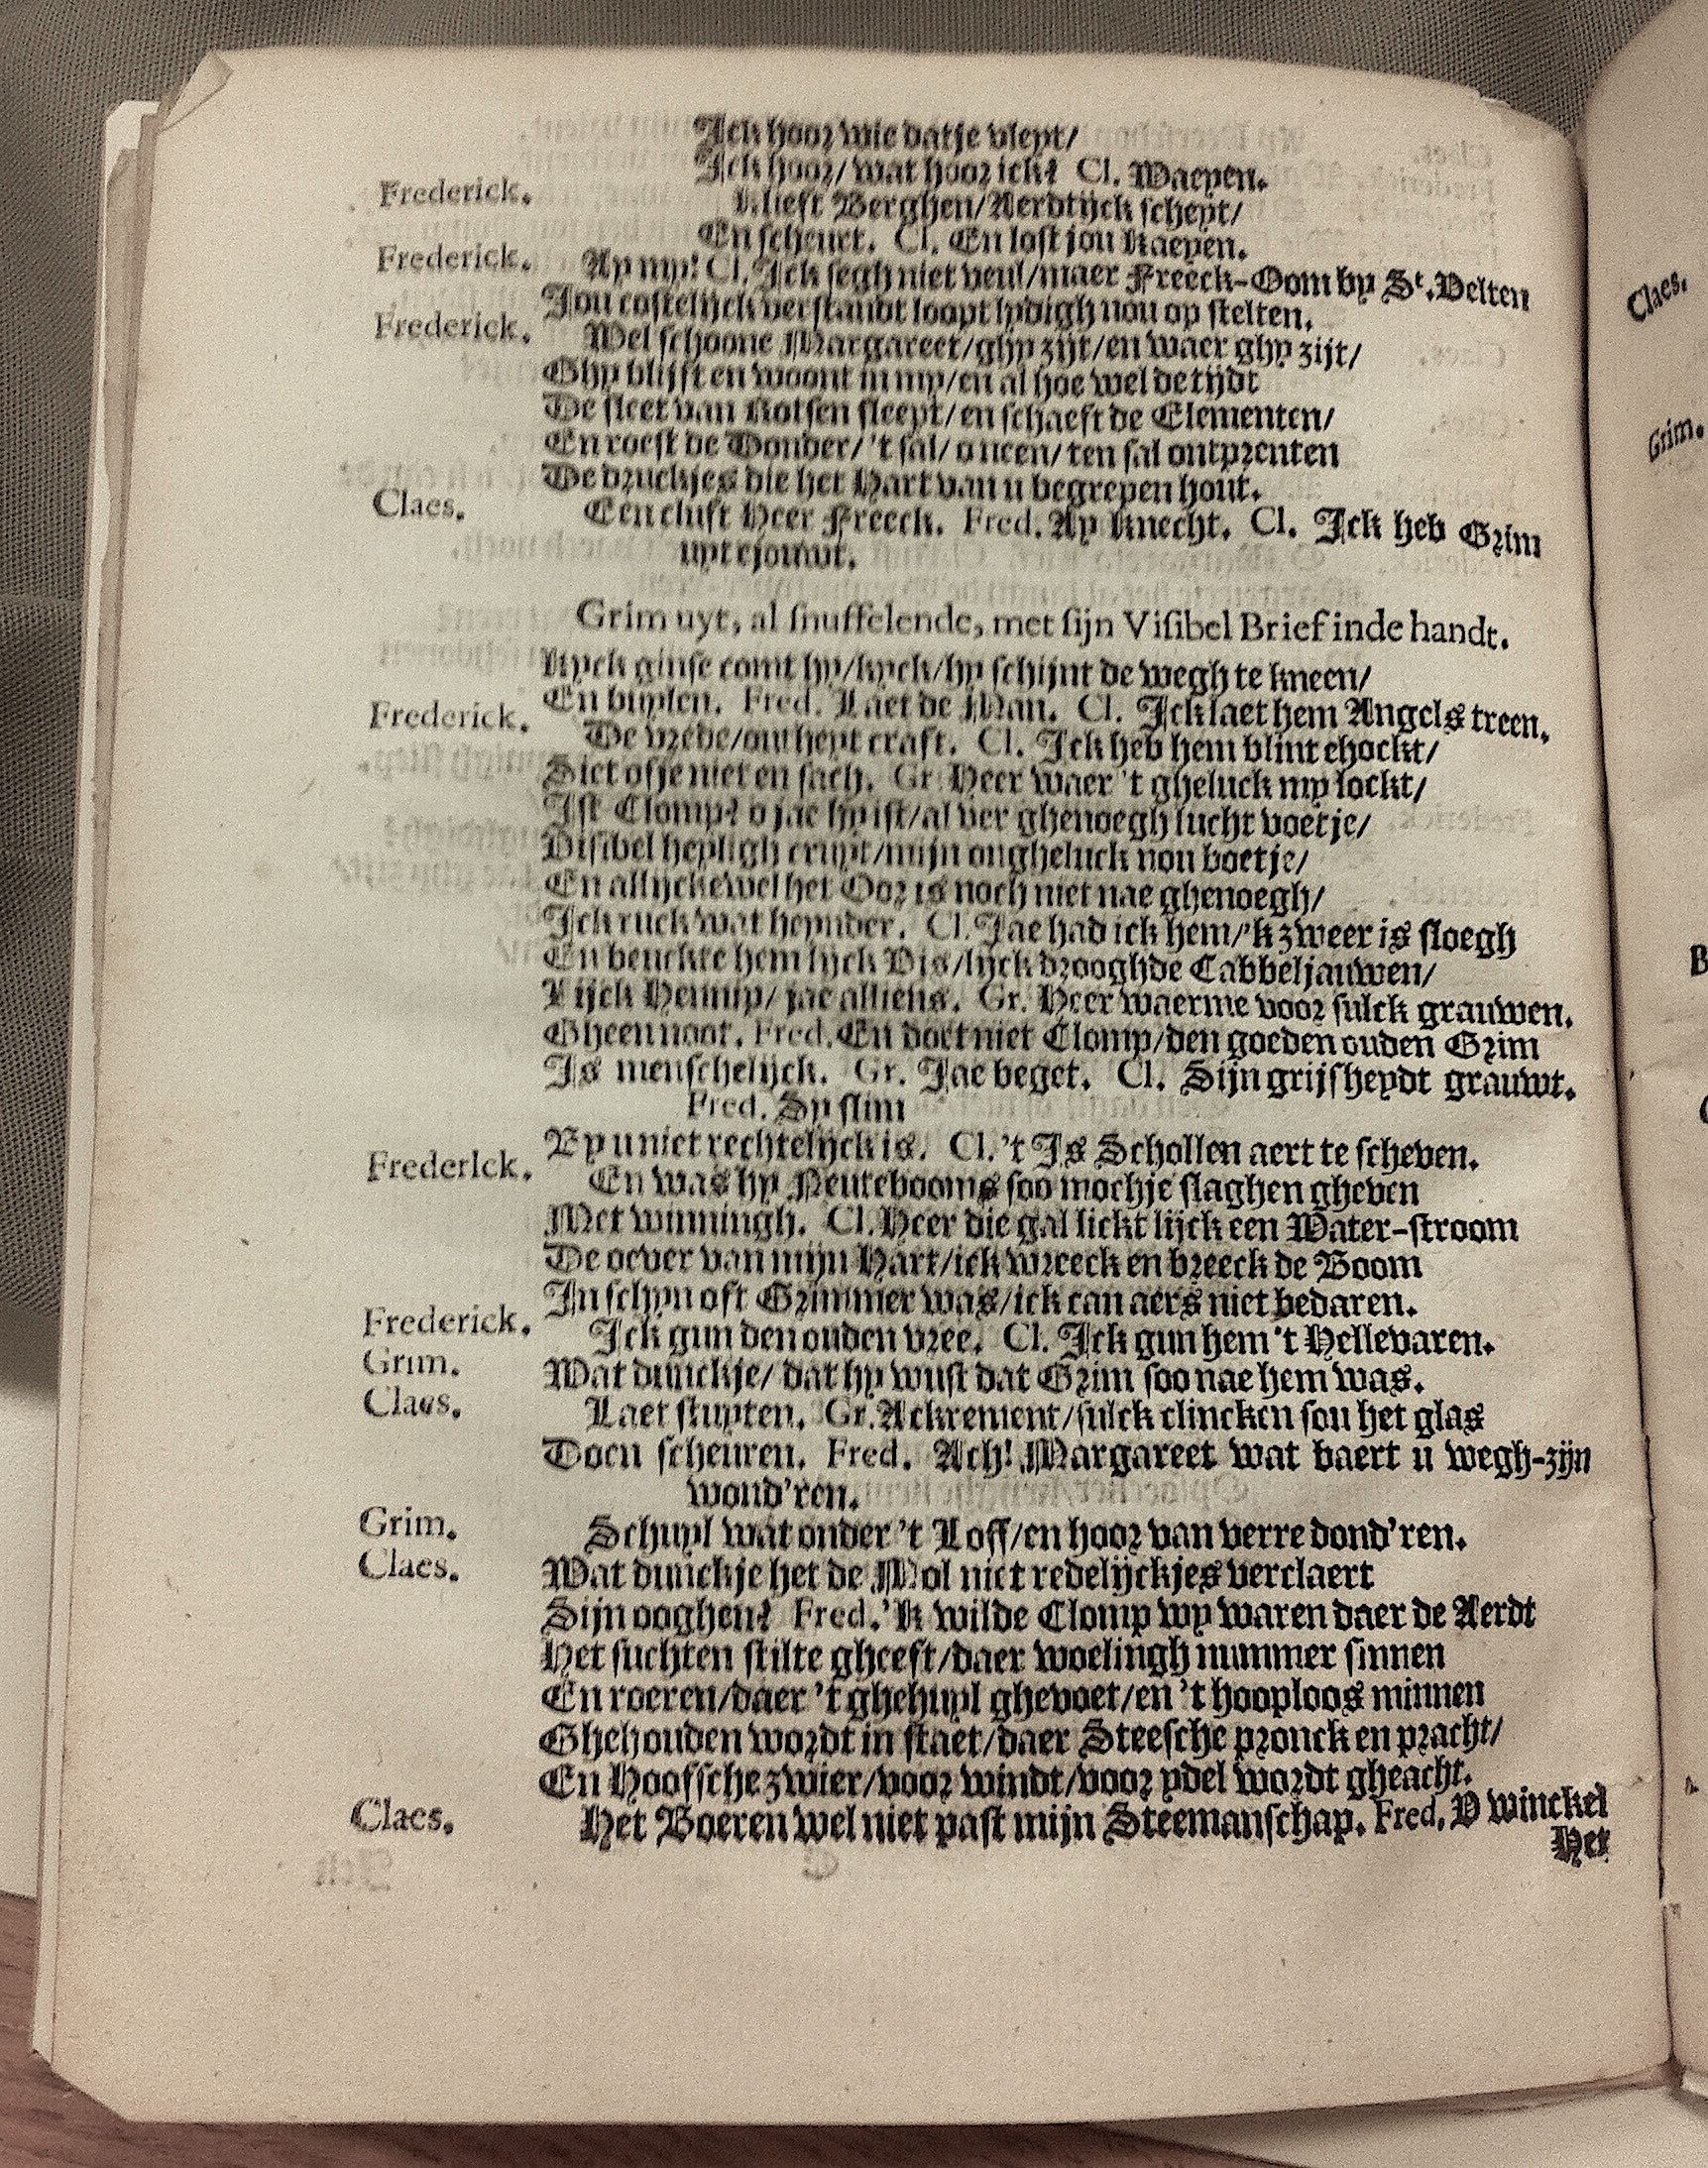 Ick hoor wie datje vleyt/
Ick hoor/ wat hoor ick? Cl. Waepen.
Frederick. Klieft Berghen/ Aerdtijck scheyt/
En scheurt. Cl. En lost jou Kaepen.
Frederick. Ay my! Cl. Ick segh niet veul/ maer Freeck-Oom by St. Velten
Jou costelijck verstandt loopt lydigh nou op stelten.
Frederick. Wel schoone Margareet/ ghy zijt/ en waer ghy zijt/
Ghy blijft en woont in my/ en al hoe wel de tijdt
De sleet van Rotsen sleept/ en schaeft de Elementen/
En roest de Donder/ 't sal/ o neen/ ten sal ontprenten
De druckjes die het Hart van u begrepen hout.
Claes. Een cluft Heer Freeck. Fred. Ay Knecht. Cl. Ick heb Grim
uyt ejouwt.
Grim uyt, al snuffelende, met sijn Visibel Brief inde handt.
Kyck ginse comt hy/ kyck/ hy schijnt de wegh te kneen/
En buylen. Fred. Laet de Man. Cl. Ick laet hem Angels treen.
Frederick. De vrede/ ontheyt craft. Cl. Ick heb hem blint ehockt/
Siet ofje niet en sach. Gr. Heer waer 't gheluck my lockt/
Ist Clomp? o jae hy ist/ al ver ghenoegh lucht voetje/
Visibel heyligh cruyt/ mijn ongheluck nou boetje/
En allijckewel het Oor is noch niet nae ghenoegh/
Ick ruck wat heynder. Cl. Jae had ick hem/ 'k zweer is sloegh
En beuckte hem lijck Vis/ lijck drooghde Cabbeljauwen/
Lijck Hennip/ jae alliens. Gr. Heer waerme voor sulck grauwen.
Gheen noot. Fred. En doet niet Clomp/ den goeden ouden Grim
Is menschelijck. Gr. Jae beget. Cl. Sijn grijsheydt grauwt.
Fred. Sy slim
By u niet rechtelijck is. Cl. 't Is Schollen aert te scheven.
Frederick. En was hy Neutebooms soo mochje slaghen gheven
Met winningh. Cl. Heer die gal lickt lijck een Water-stroom
De oever van mijn Hart/ ick wreeck en breeck de Boom
In schyn oft Grimmer was/ ick can aers niet bedaren.
Frederick. Ick gun den ouden vree. Cl. Ick gun hem 't Hellevaren.
Grim. Wat dunckje/ dat hy wust dat Grim soo nae hem was.
Claes. Laet stuyten. Gr. Ackrement/ sulck clincken sou het glas
Doen scheuren. Fred. Ach! Margareet wat baert u wegh-zijn
wond'ren.
Grim. Schuyl wat onder 't Loff/ en hoor van verre dond'ren.
Claes. Wat dunckje het de Mol niet redelijckjes verclaert
Sijn ooghen? Fred. 'k wilde Clomp wy waren daer de Aerdt
Het suchten stilte gheeft/ daer woelingh nummer sinnen
En roeren/ daer 't ghehuyl ghevoet/ en 't hooploos minnen
Ghehouden wordt in staet/ daer Steesche pronck en pracht/
En Hoofsche zwier/ voor windt/ voor ydel wordt gheacht.
Claes. Het Boeren wel niet past mijn Steemanschap. Fred. D winckel
Het
Claes.
Grim.